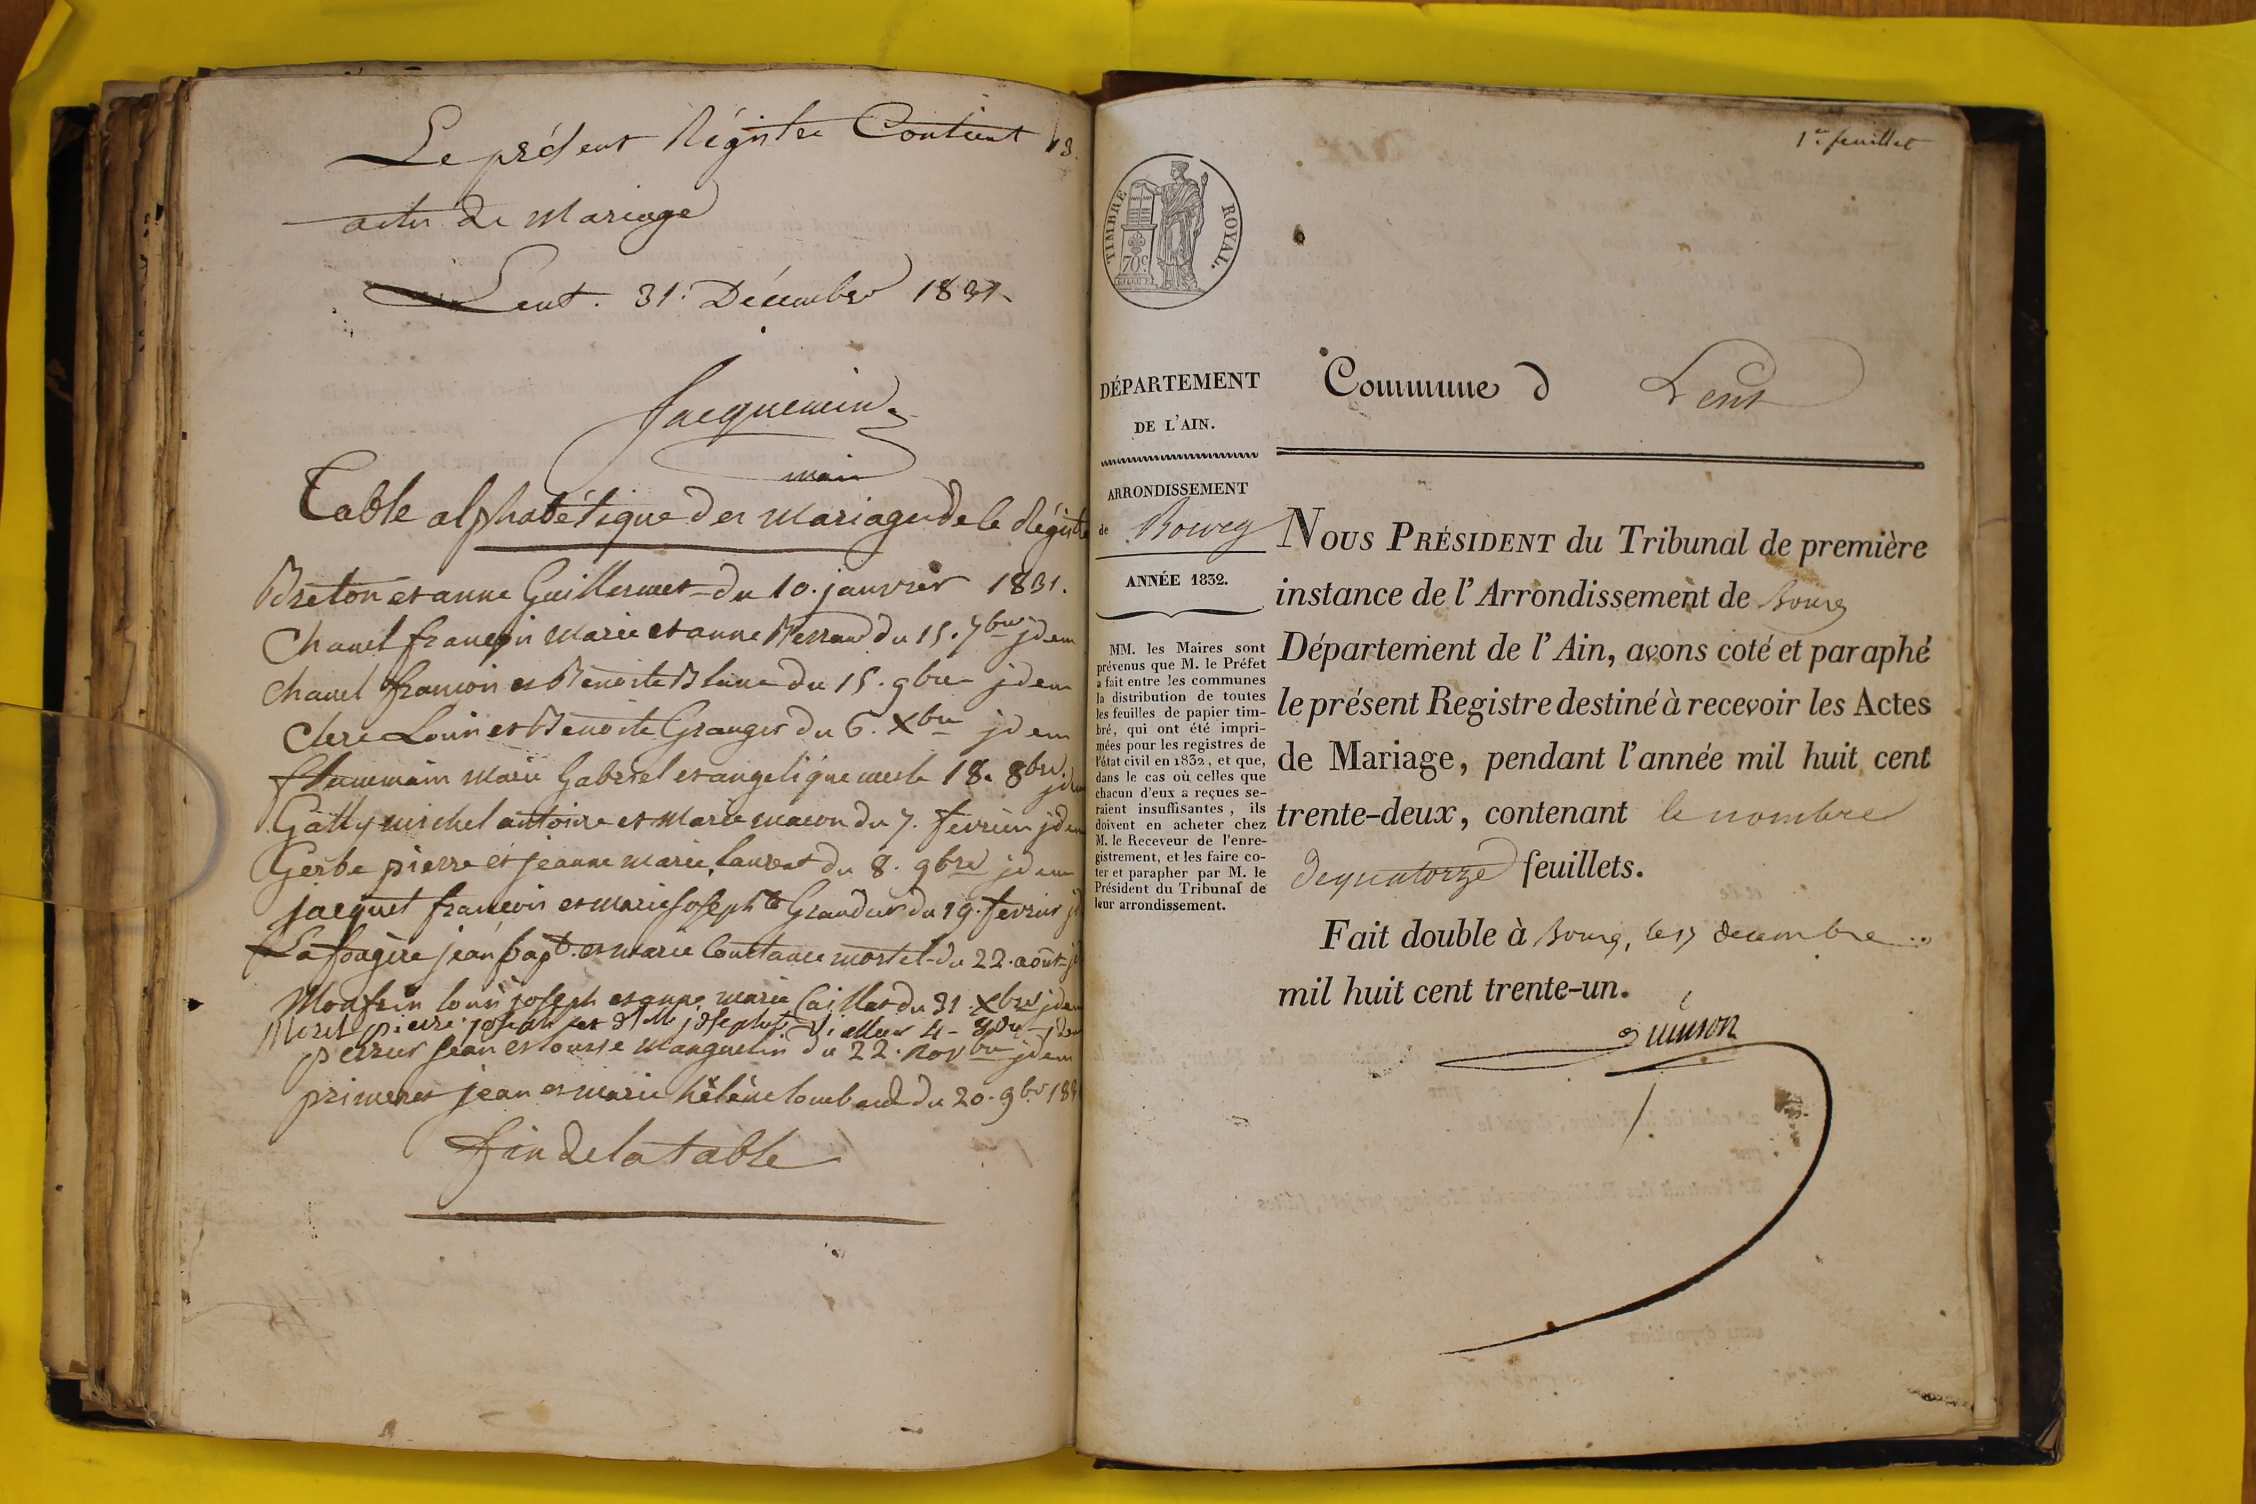 Le présent Régistre Contient 13
actes de Mariage
Lent. 31. Décembre 1831.
Jacquemin
maire
Table alphabétique des mariages de le Régistre
Breton et anne Guillermet du 10. janvier 1831.
Chanel françois Marie et anne Perraud du 15. 7bre jdem
Chanel françois et Benoite Blanc du 15. 9bre jdem
Clerc Louis et Benoite Granger du 6. Xbre jdem
Marie Gabriel et angelique 18. 8bre jdem
Gatty michel antoine et Marie macon du 7. fevrier jdem
Gerbe pierre et jeanne marie Laurent du 8. 9bre jdem
jacquet françois et marie josephte du 19. fevrier jd
Lafougère jean bapt. et marie Constance mortel du 22. août jd
Monfrin louis joseph et anne marie Caillat du 31 Xbre jdem
Morel pierre joseph et dlle josephte 4 - 8bre - jdem
perrier jean et louise Manguelin du 22. Novbre jdem
primeret jean et marie hélène Lombard du 20. 9br 183
fin de la table
1er feuillet
TIMBRE ROYAL.
70 c.
DÉPARTEMENT
DE L'AIN.
ARRONDISSEMENT
de Bourg
ANNÉE 1832.
MM. les Maires sont
prévenus que M. le Préfet
a fait entre les communes
la distribution de toutes
les feuilles de papier tim-
bré, qui ont été impri-
mées pour les registres de
l'état civil en 1832, et que,
dans le cas où celles que
chacun d'eux a reçues se-
raient insuffisantes, ils
doivent en acheter chez
M. le Receveur de l'enre-
gistrement, et les faire co-
ter et parapher par M. le
Président du Tribunal de
leur arrondissement.
Commune d Lent
NOUS PRÉSIDENT du Tribunal de première
instance de l'Arrondissement de Bourg
Département de l'Ain, avons coté et paraphé
le présent Registre destiné à recevoir les Actes
de Mariage, pendant l'année mil huit cent
trente-deux, contenant le nombre
de quatorze feuillets.
Fait double à Bourg, le 17 decembre
mil huit cent trente-un.